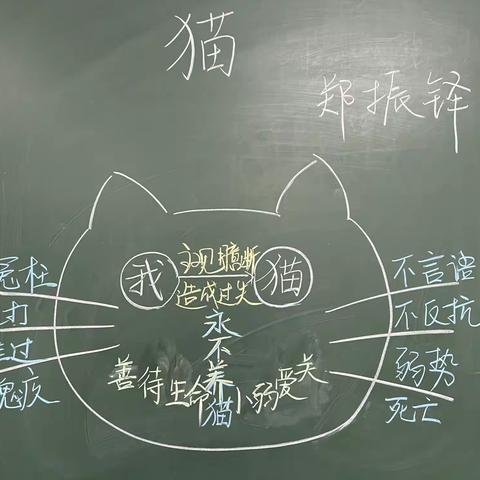 猫
郑振铎
我
主观臆断
造成过失
猫
永不养猫
善待生命小弱爱关
冤枉
打
过
愧疚
不言语
不反抗
弱势
死亡